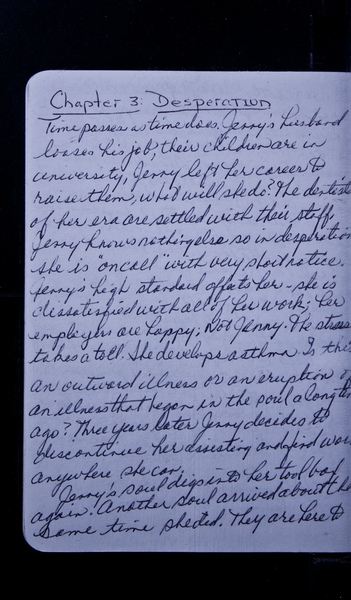 Chapter 3: Desperation
Time passes as time does. Jenny's husband
looses his job, their children are in
university, Jenny left her career to
raise them, what will she do? The dentists
of her era are settled with their staff,
Jenny knows nothing else so in desperation
she is "on call" with very short notice.
Jenny's high standard affects her - she is
dissatisfied with all of her work; her
employers are happy, Not Jenny. The stress
takes a toll. She develops asthma. Is this
an outward illness or an eruption of
an illness that began in the soul a long
ago? Three years later Jenny decides to
discontinue her assisting and find work
anywhere she can.
Jenny's soul digs into her tool box
again. Another soul arrived about the
same time she did. They are here to